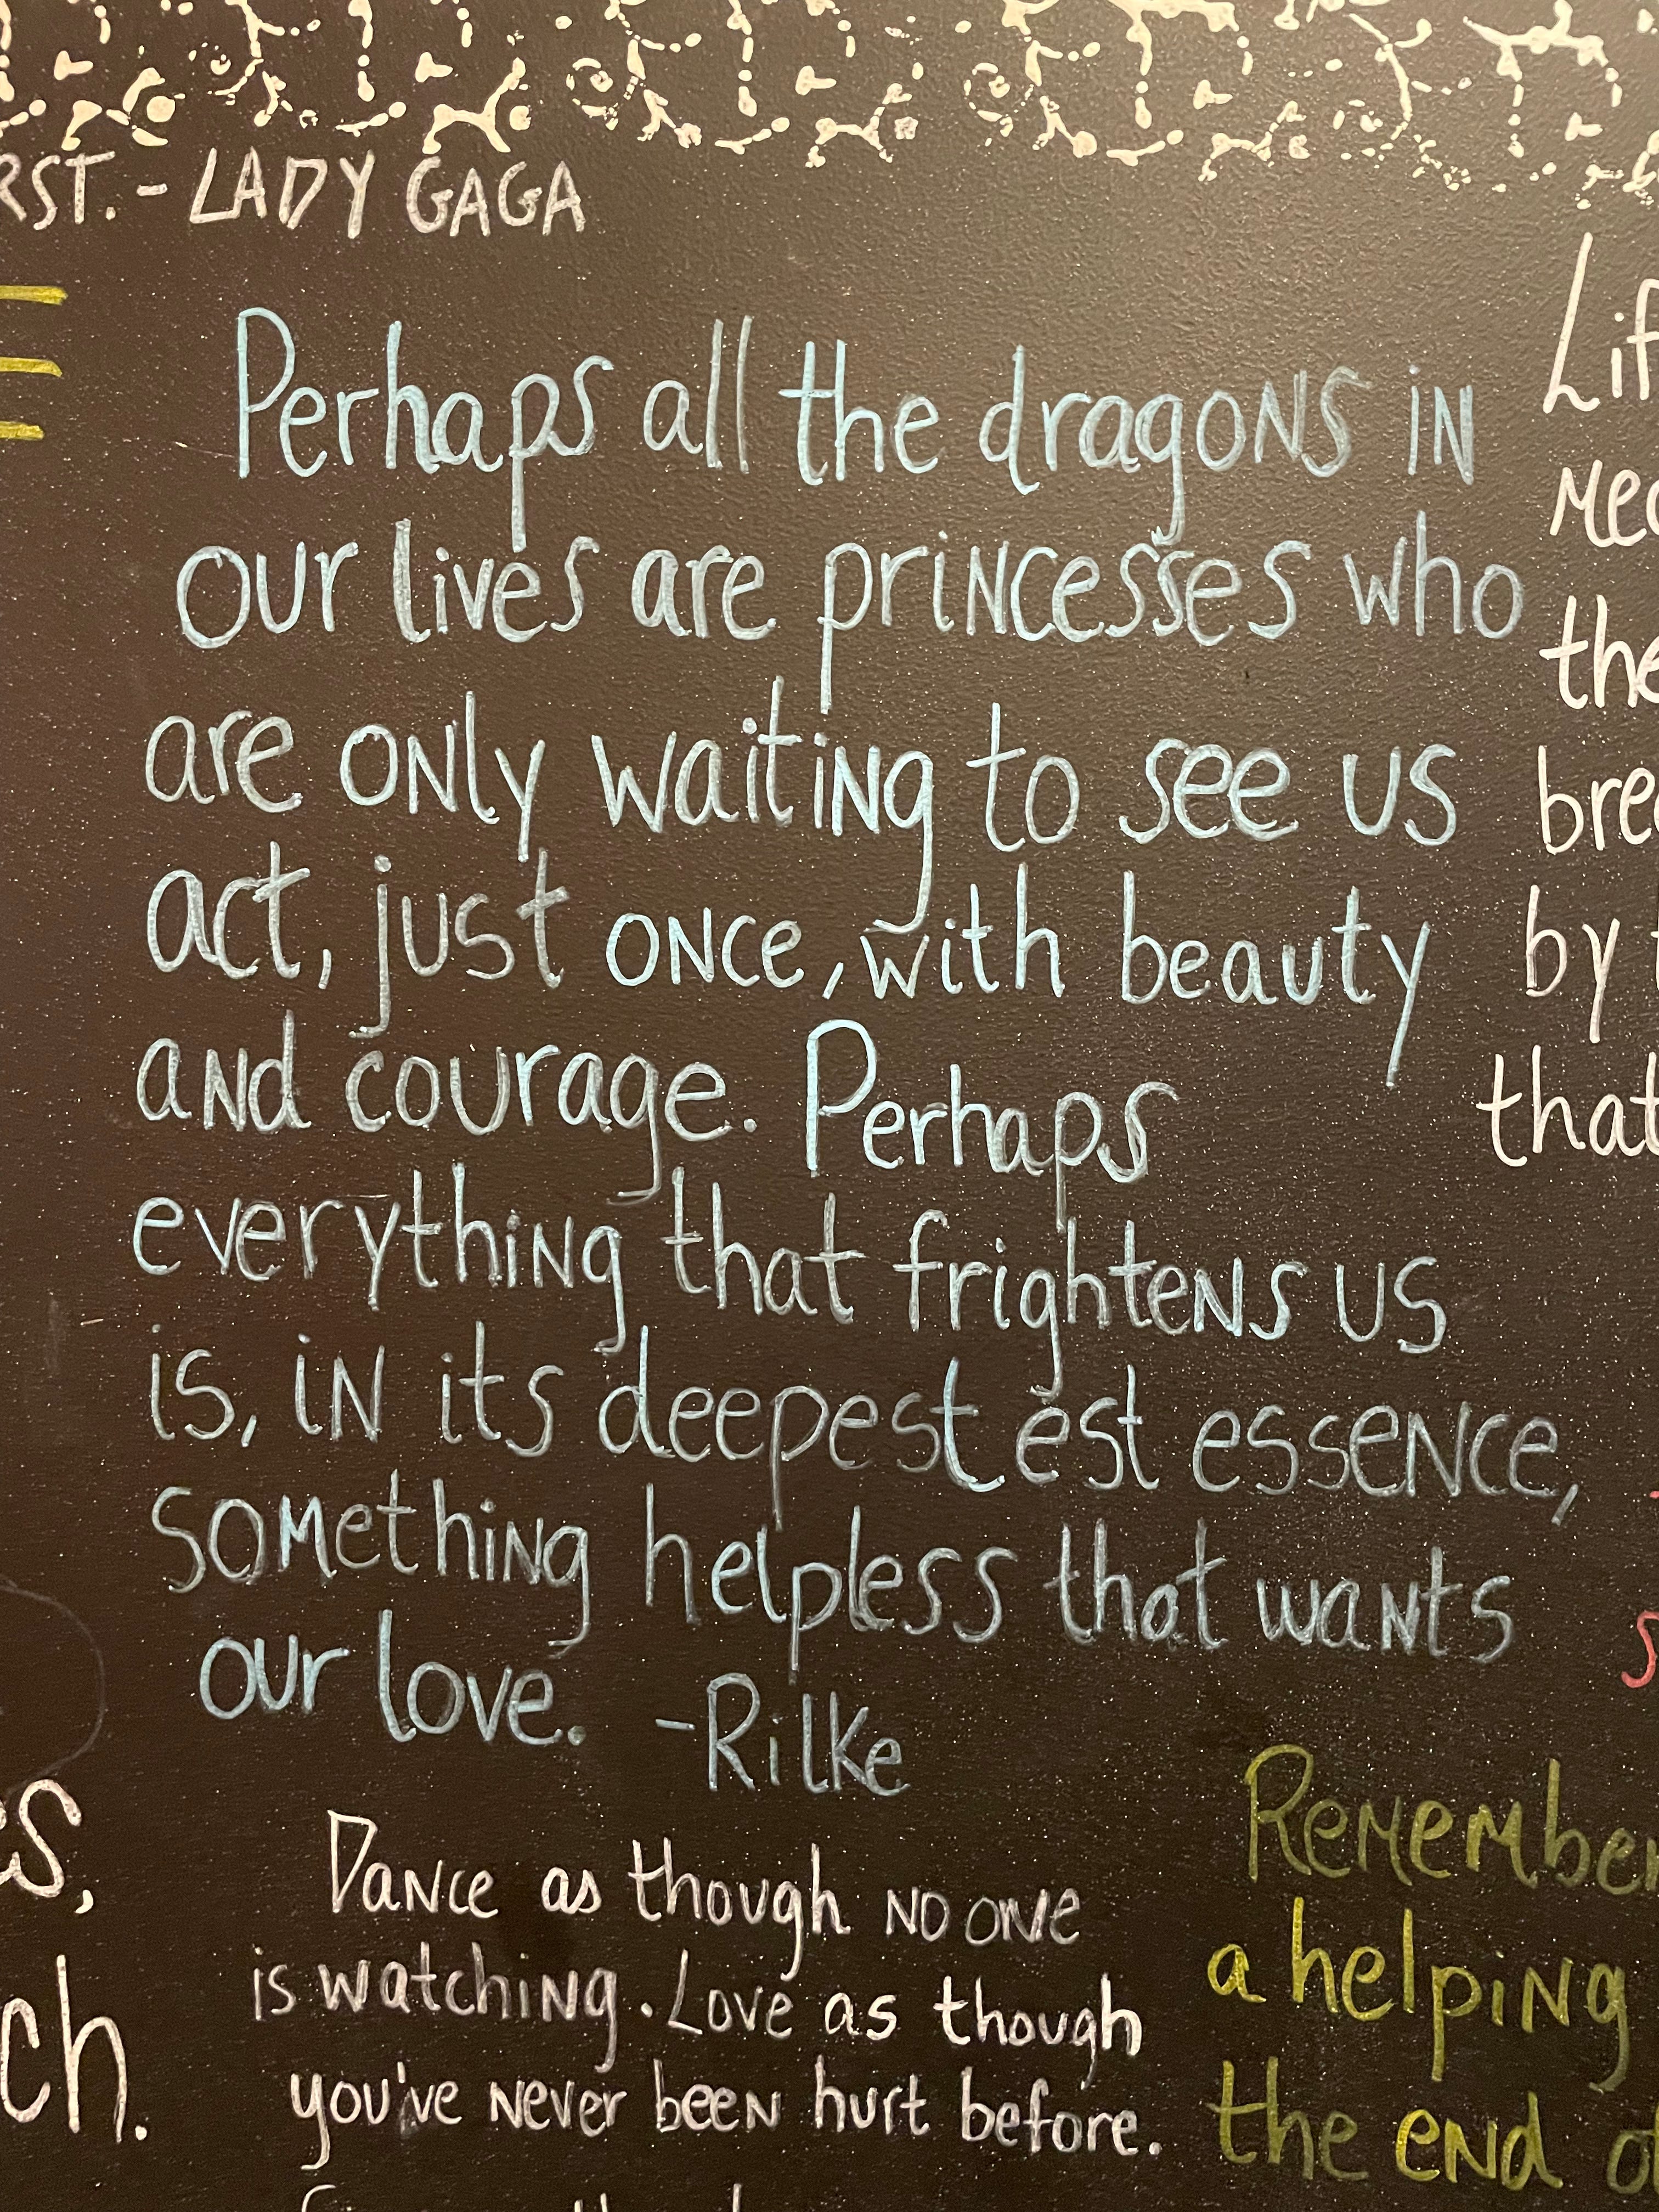 RST. - LADY GAGA
Perhaps all the dragons in
our lives are princesses who
are only waiting to see us
act, just once, with beauty
and courage. Perhaps
everything that frightens us
is, in its deepest est essence,
something helpless that wants
our love. -Rilke
Dance as though no one
is watching. Love as though
you've never been hurt before.
Lif
mea
the
brea
by t
that
Remember
a helping
the end of
s,
ch.